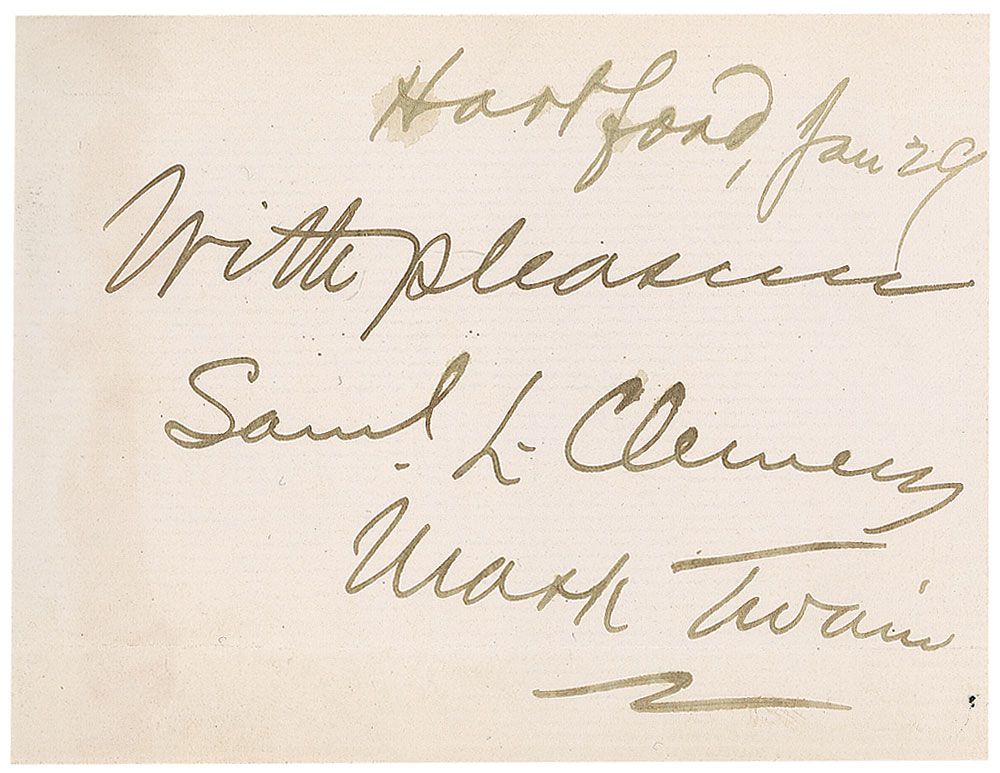 Hartford, Jan 29
With pleasure
Saml. L. Clemens
Mark Twain